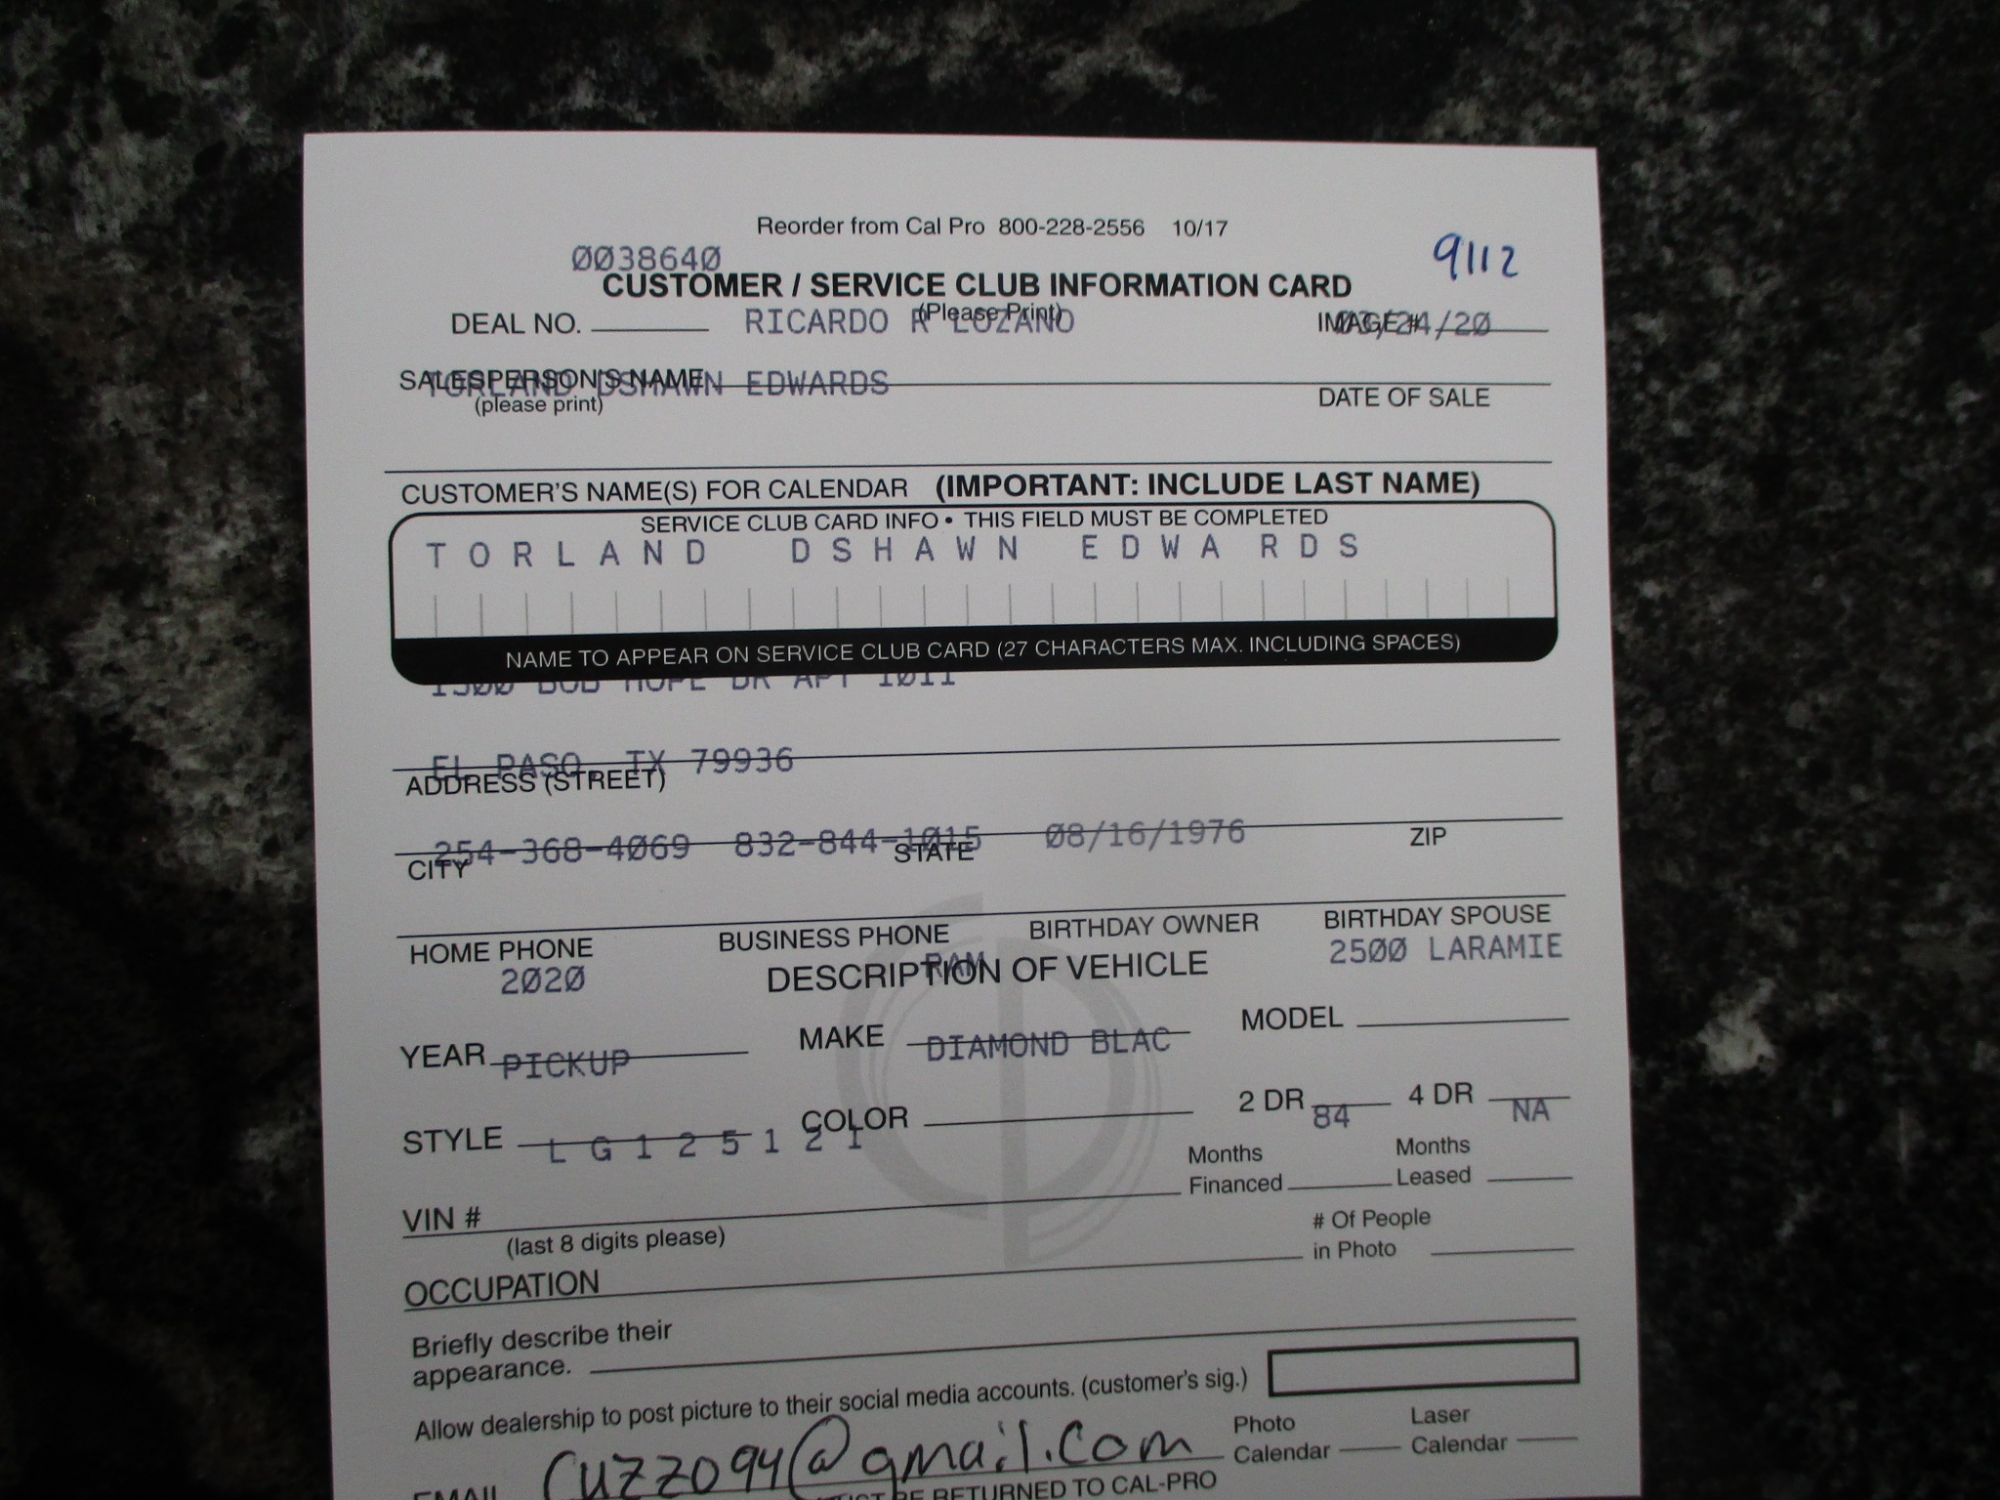 Reorder from Cal Pro 800-228-2556 10/17
0038640
9112
CUSTOMER / SERVICE CLUB INFORMATION CARD
(Please Print)
DEAL NO. RICARDO R LOZANO IMAGE # 03/24/20
SALESPERSON'S NAME TORLAND DSHAWN EDWARDS
(please print) DATE OF SALE
CUSTOMER'S NAME(S) FOR CALENDAR (IMPORTANT: INCLUDE LAST NAME)
SERVICE CLUB CARD INFO • THIS FIELD MUST BE COMPLETED
TORLAND DSHAWN EDWARDS
NAME TO APPEAR ON SERVICE CLUB CARD (27 CHARACTERS MAX. INCLUDING SPACES)
1500 BOB HOPE DR APT 1011
EL PASO, TX 79936
ADDRESS (STREET)
254-368-4069 832-844-1015 08/16/1976
CITY STATE ZIP
HOME PHONE BUSINESS PHONE BIRTHDAY OWNER BIRTHDAY SPOUSE
2020 RAM 2500 LARAMIE
DESCRIPTION OF VEHICLE
YEAR MAKE MODEL
PICKUP DIAMOND BLAC
STYLE COLOR 2 DR 4 DR
LG125121 84 NA
Months Financed Months Leased
VIN #
(last 8 digits please)
# Of People in Photo
OCCUPATION
Briefly describe their
appearance.
Allow dealership to post picture to their social media accounts. (customer's sig.)
EMAIL Cuzzo94@gmail.com Photo Calendar Laser Calendar
BE RETURNED TO CAL-PRO